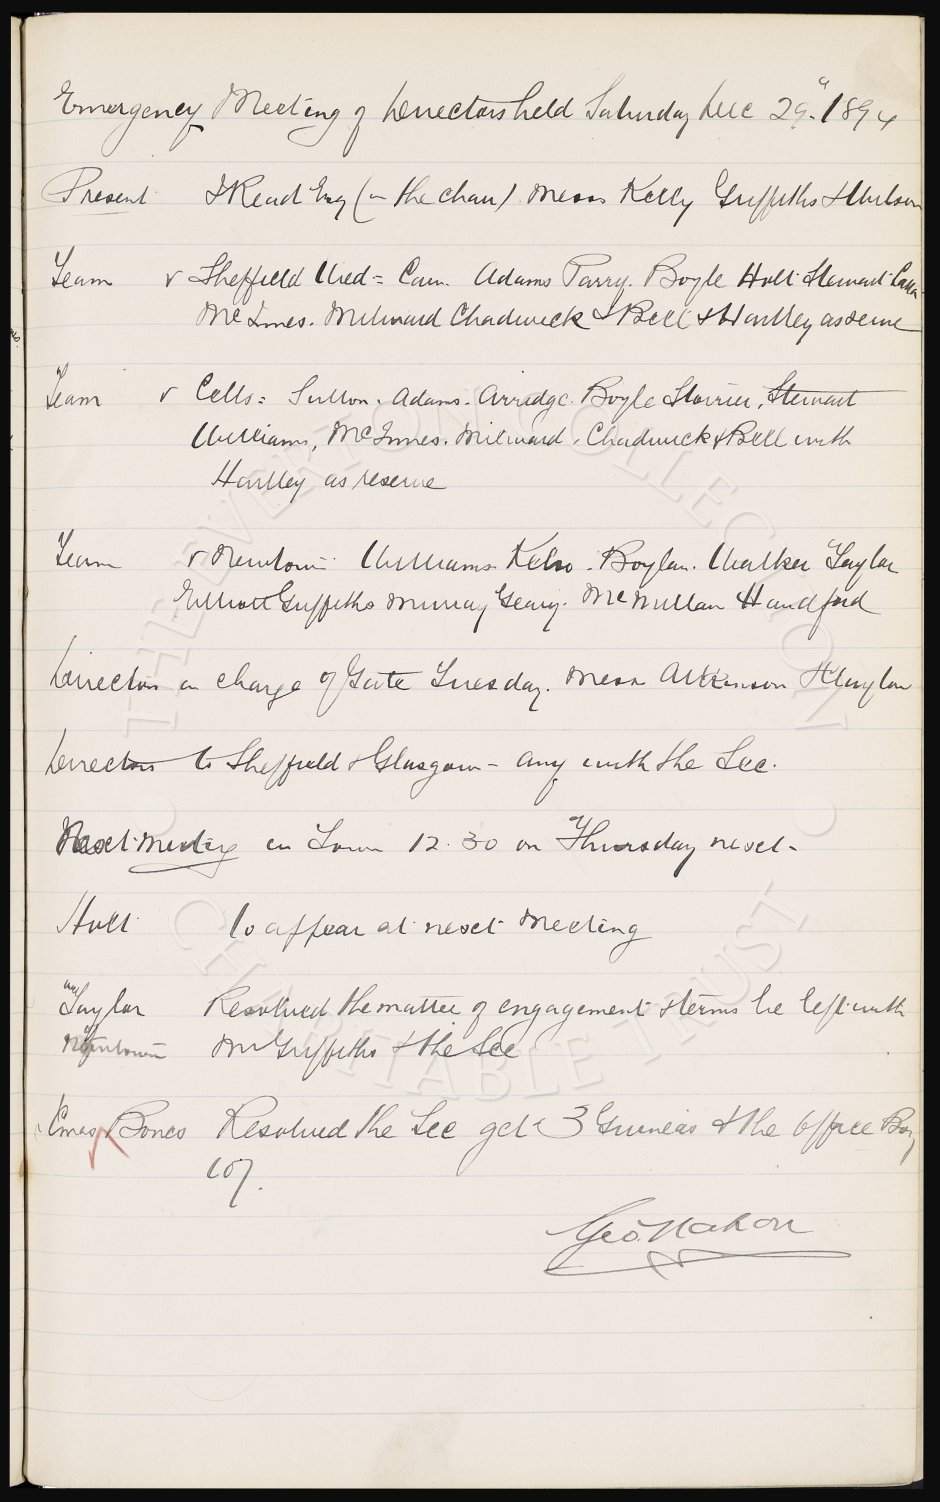 Emergency Meeting of Directors held Saturday Dec 29" 1894
Present J Read Esq (in the chair). Messrs Kelly Griffiths & Wilson
Team v Sheffield Utd = Cain. Adams Parry. Boyle Holt Stewart Latta
McInnes. Milward Chadwick & Bell & Hartley as reserve
Team v Celts = Sutton. Adams. Arridge. Boyle Storrier. Stewart
Williams, McInnes. Milward. Chadwick & Bell with
Hartley as reserve
Team v Newtown Williams Kelso. Boylan. Walker Taylor
Elliott Griffiths Murray Geary. McMillan Handford
Directors in charge of Gate Tuesday. Messrs Atkinson & Clayton
Directors to Sheffield & Glasgow - any with the Sec.
Next Meeting in Town 12.30 on Thursday next -
Holt to appear at next meeting
Taylor Resolved the matter of engagement & terms be left with
Newtown Mr Griffiths & the Sec
Xmas Boxes Resolved the Sec get 3 Guineas & the Office Boy
10/.
Geo. Mahon
THE EVERTON COLLECTION
CHARITABLE TRUST